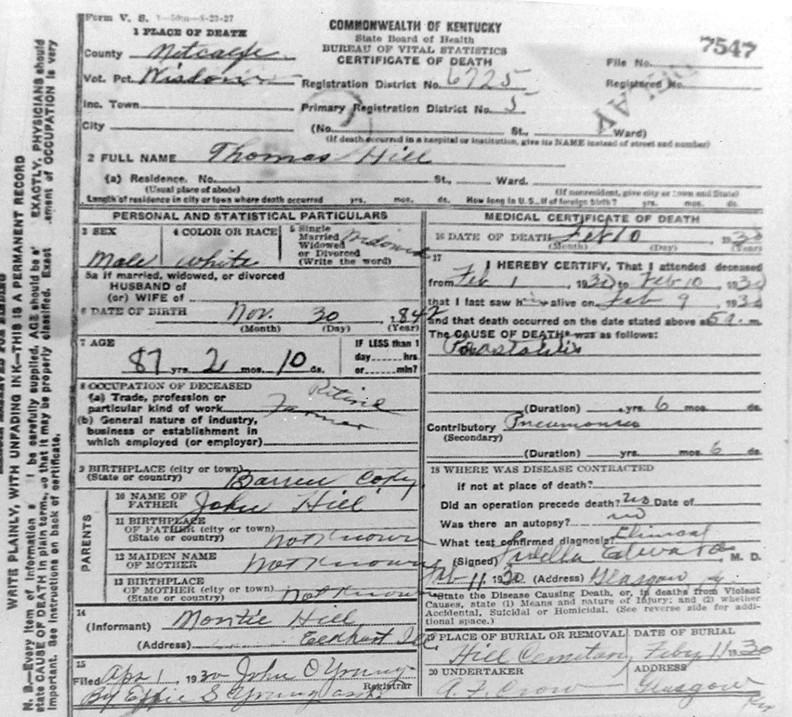 Form V. S.
COMMONWEALTH OF KENTUCKY
State Board of Health
BUREAU OF VITAL STATISTICS
CERTIFICATE OF DEATH
7547
File No.
Registered No.
DELAY
1 PLACE OF DEATH
County Metcalfe
Vot. Pct. Wisdom
Inc. Town
City
Registration District No. 6725
Primary Registration District No. 5
(No. St., Ward)
(If death occurred in a hospital or institution, give its NAME instead of street and number)
2 FULL NAME Thomas Hill
(a) Residence. No. St., Ward.
(Usual place of abode) (If nonresident, give city or town and State)
Length of residence in city or town where death occurred yrs. mos. ds. How long in U. S., if of foreign birth? yrs. mos. ds.
PERSONAL AND STATISTICAL PARTICULARS
3 SEX Male
4 COLOR OR RACE White
5 Single Married Widowed or Divorced (Write the word) Widowed
5a If married, widowed, or divorced
HUSBAND of
(or) WIFE of
6 DATE OF BIRTH Nov. 30, 1842
(Month) (Day) (Year)
7 AGE 87 yrs. 2 mos. 10 ds.
IF LESS than 1
day hrs
or min?
8 OCCUPATION OF DECEASED
(a) Trade, profession or
particular kind of work Retired Farmer
(b) General nature of industry,
business or establishment in
which employed (or employer)
9 BIRTHPLACE (city or town)
(State or country) Barren
PARENTS
10 NAME OF
FATHER John Hill
11 BIRTHPLACE
OF FATHER (city or town)
(State or country) Not Known
12 MAIDEN NAME
OF MOTHER Not Known
13 BIRTHPLACE
OF MOTHER (city or town)
(State or country) Not Known
14
(Informant) Montie Hill
(Address)
15
Filed Apr 1 1930 John O Young
Registrar
By Effie S Young
MEDICAL CERTIFICATE OF DEATH
16 DATE OF DEATH Feb 10 1930
(Month) (Day) (Year)
17
I HEREBY CERTIFY, That I attended deceased
from Feb 1, 1930 to Feb 10, 1930
that I last saw h alive on Feb 9, 1930
and that death occurred on the date stated above at 5 a. m.
The CAUSE OF DEATH* was as follows:
(Duration) yrs. 6 mos. ds.
Contributory Pneumonia
(Secondary)
(Duration) yrs. mos. 6 ds.
18 WHERE WAS DISEASE CONTRACTED
if not at place of death?
Did an operation precede death? no Date of
Was there an autopsy? no
What test confirmed diagnosis? Clinical
(Signed) Edwards M. D.
Feb 11 1930 (Address) Glasgow Ky.
*State the Disease Causing Death, or, in deaths from Violent
Causes, state (1) Means and nature of Injury; and (2) whether
Accidental, Suicidal or Homicidal. (See reverse side for addi-
tional space.)
19 PLACE OF BURIAL OR REMOVAL Hill Cemetary
DATE OF BURIAL Feby 11 1930
20 UNDERTAKER A. F. Crow
ADDRESS Glasgow
Ky
WRITE PLAINLY, WITH UNFADING INK—THIS IS A PERMANENT RECORD
N. B.—Every item of information s be carefully supplied. AGE should be s EXACTLY, PHYSICIANS should
state CAUSE OF DEATH in plain terms, so that it may be properly classified. Exact ement of OCCUPATION is very
important. See instructions on back of certificate.